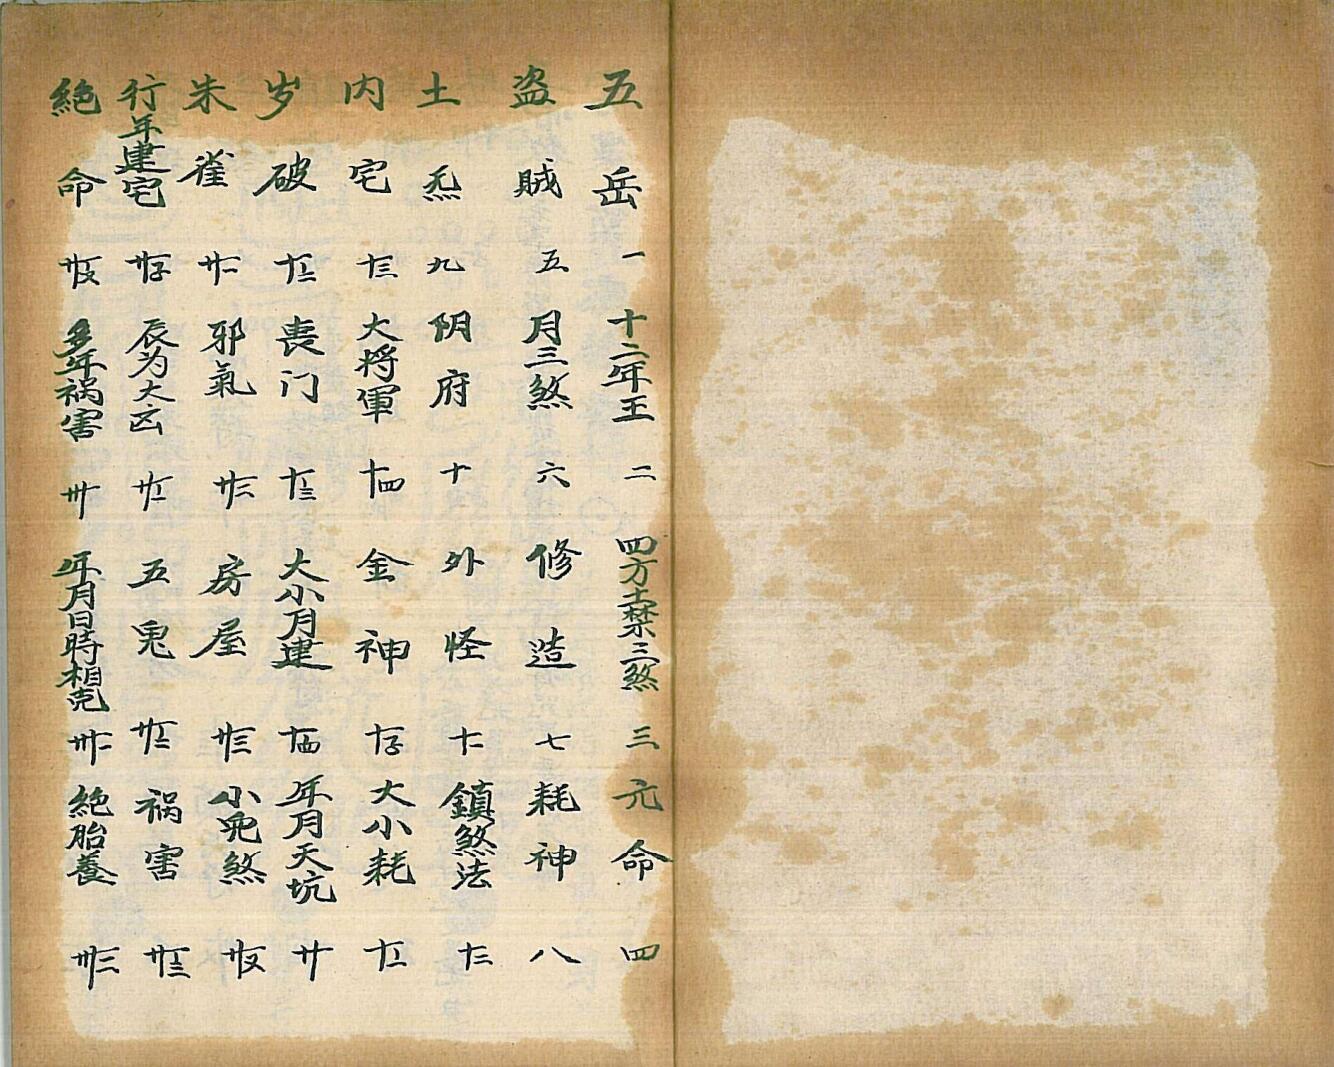 五岳 一 十二年王 二 四方土禁三煞 三 元命 四
盗賊 五 月三煞 六 修造 七 耗神 八
土炁 九 阴府 十 外怪 十一 鎮煞法 十二
内宅 十三 大将軍 十四 金神 十〥 大小耗 十〦
岁破 十〧 喪门 十〨 大小月建 十〩 年月天坑 廿
朱雀 廿一 邪氣 廿二 房屋 廿三 小児煞 廿〤
行年建宅 廿〥 辰为大凶 廿〦 五鬼 廿〧 祸害 廿〨
絶命 廿〩 多年祸害 卅 年月日時相克 卅一 絶胎養 卅二